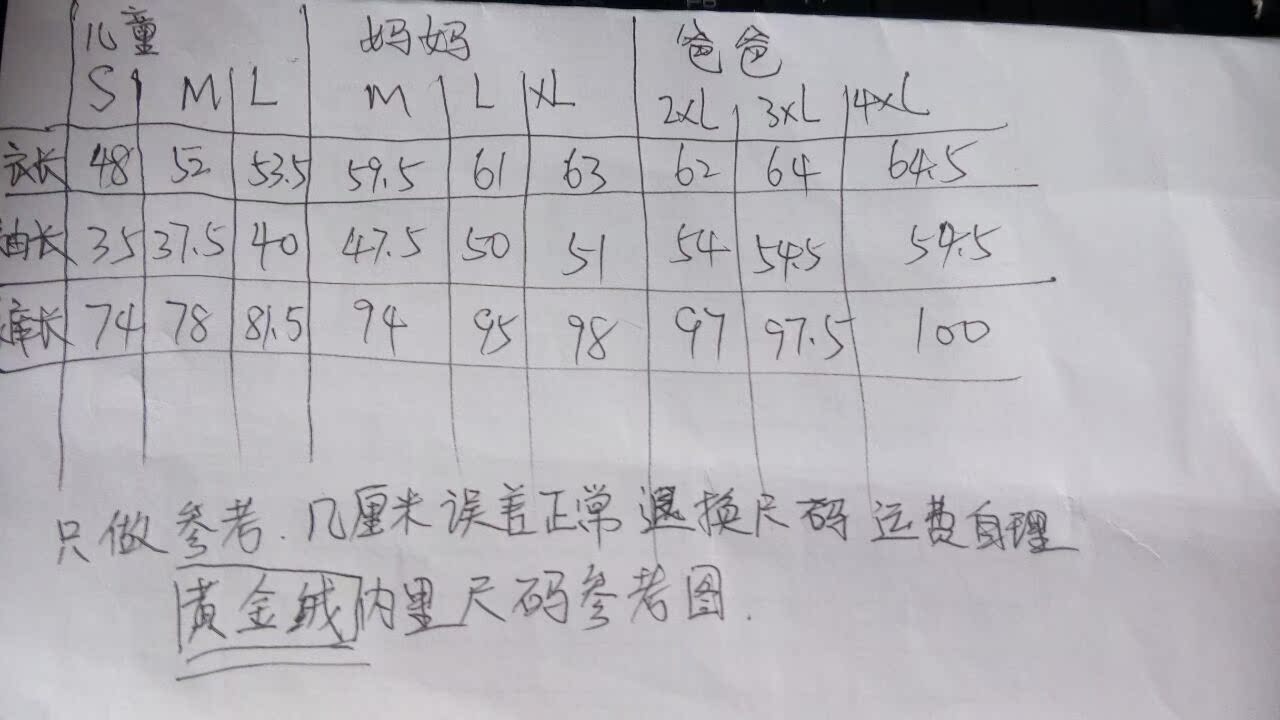 儿童 妈妈 爸爸
S M L M L XL 2XL 3XL 4XL
衣长 48 52 53.5 59.5 61 63 62 64 64.5
袖长 35 37.5 40 47.5 50 51 54 54.5 59.5
裤长 74 78 81.5 94 95 98 97 97.5 100
只做参考.几厘米误差正常 退换尺码 运费自理
黄金绒内里尺码参考图.